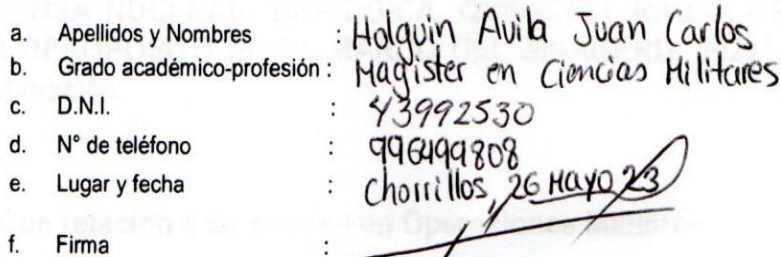 a. Apellidos y Nombres : Holguin Avila Juan Carlos
b. Grado académico-profesión : Magister en Ciencias Militares
c. D.N.I. : 43992530
d. N° de teléfono : 996499808
e. Lugar y fecha : Chorrillos, 26 Mayo 23
f. Firma :